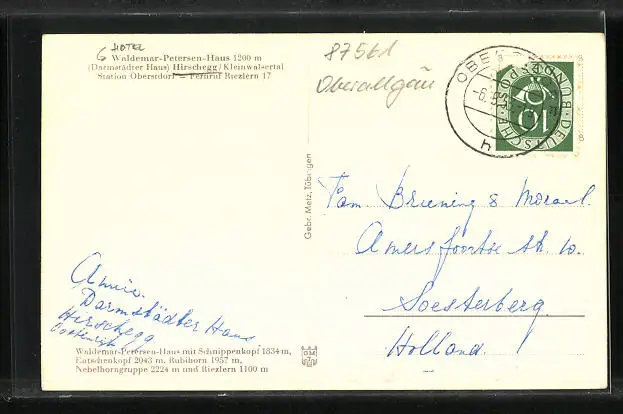 6 HOTEL
Waldemar-Petersen-Haus 1200 m
(Darmstädter Haus) Hirschegg/Kleinwalsertal
Station Oberstdorf — Fernruf Riezlern 17
87561
Oberallgäu
DEUTSCHE BUNDESPOST
10
Gebr. Metz, Tübingen
Fam. Bruening & Morael.
Amersfoortse str. 10.
Soesterberg.
Holland.
Darmstädter Haus.
Hirschegg
Oostenrijk
Waldemar-Petersen-Haus mit Schnippenkopf 1834 m,
Entschenkopf 2043 m, Rubihorn 1957 m,
Nebelhorngruppe 2224 m und Riezlern 1100 m